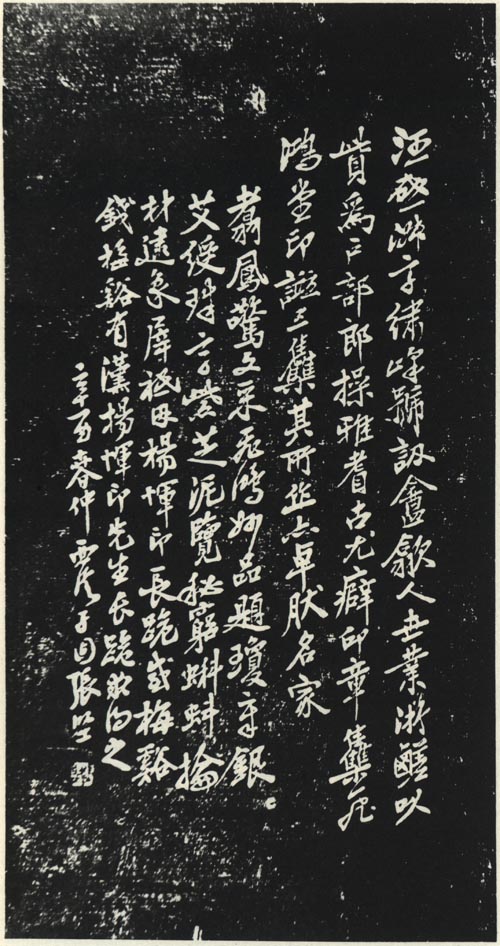 汪啟淑字繡峰號訒盦歙人世業浙鹺以
貲為戶部郎操雅耆古尤癖印章集飛
鴻堂印譜三集其所作亦卓肰名家
翥鳳驚文采飛鴻妙品題瓊章銀
艾綬珠字紫芝泥覽秘窮蝌蚪掄
材遠象犀祇因楊惲印長跪感梅谿
錢梅谿有漢楊惲印先生長跪求得之
辛酉春仲霞子回張